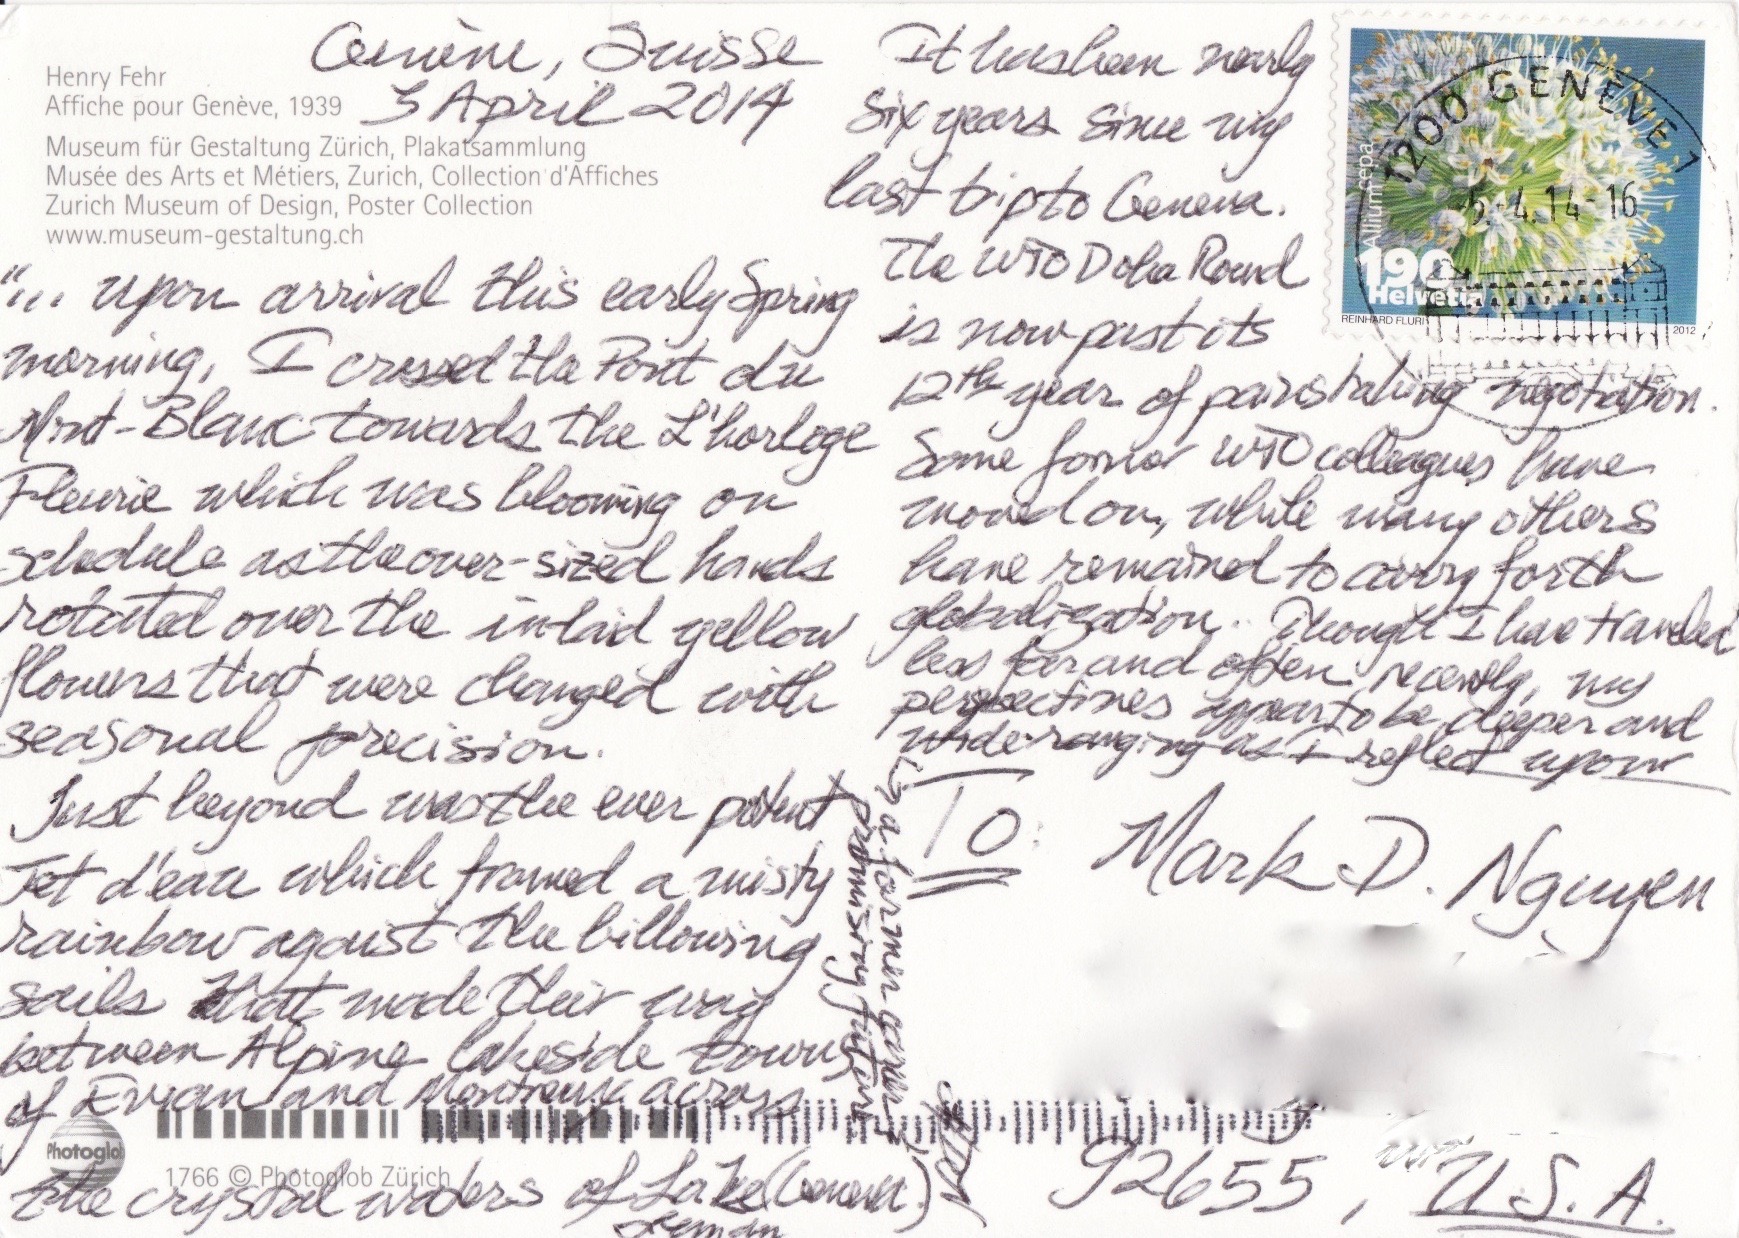 Henry Fehr
Affiche pour Genève, 1939
Museum für Gestaltung Zürich, Plakatsammlung
Musée des Arts et Métiers, Zurich, Collection d'Affiches
Zurich Museum of Design, Poster Collection
www.museum-gestaltung.ch
Genève, Suisse
3 April 2014
"... upon arrival this early Spring
morning, I crossed the Pont du
Mont-Blanc towards the L'horloge
Fleurie which was blooming on
schedule as the over-sized hands
rotated over the inlaid yellow
flowers that were changed with
seasonal precision.
Just beyond was the ever potent
Jet d'eau which framed a misty
rainbow against the billowing
sails that made their way
between Alpine lakeside towns
of Evian and Montreux across
the crystal waters of Lake (Geneva.)
Leman
Photoglob
1766 © Photoglob Zürich
It has been nearly
six years since my
last trip to Geneva.
The WTO Doha Round
is now past its
12th year of painstaking negotiation.
Some former WTO colleagues have
moved on, while many others
have remained to carry forth
globalization. Though I have traveled
less far and often recently, my
perspectives appear to be deeper and
wide-ranging as I reflect upon
a
promising future
1200 GENEVE 1
5.-4.14-16
Allium cepa
190
Helvetia
REINHARD FLURI
2012
TO:
Mark D. Nguyen
92655, U.S.A.